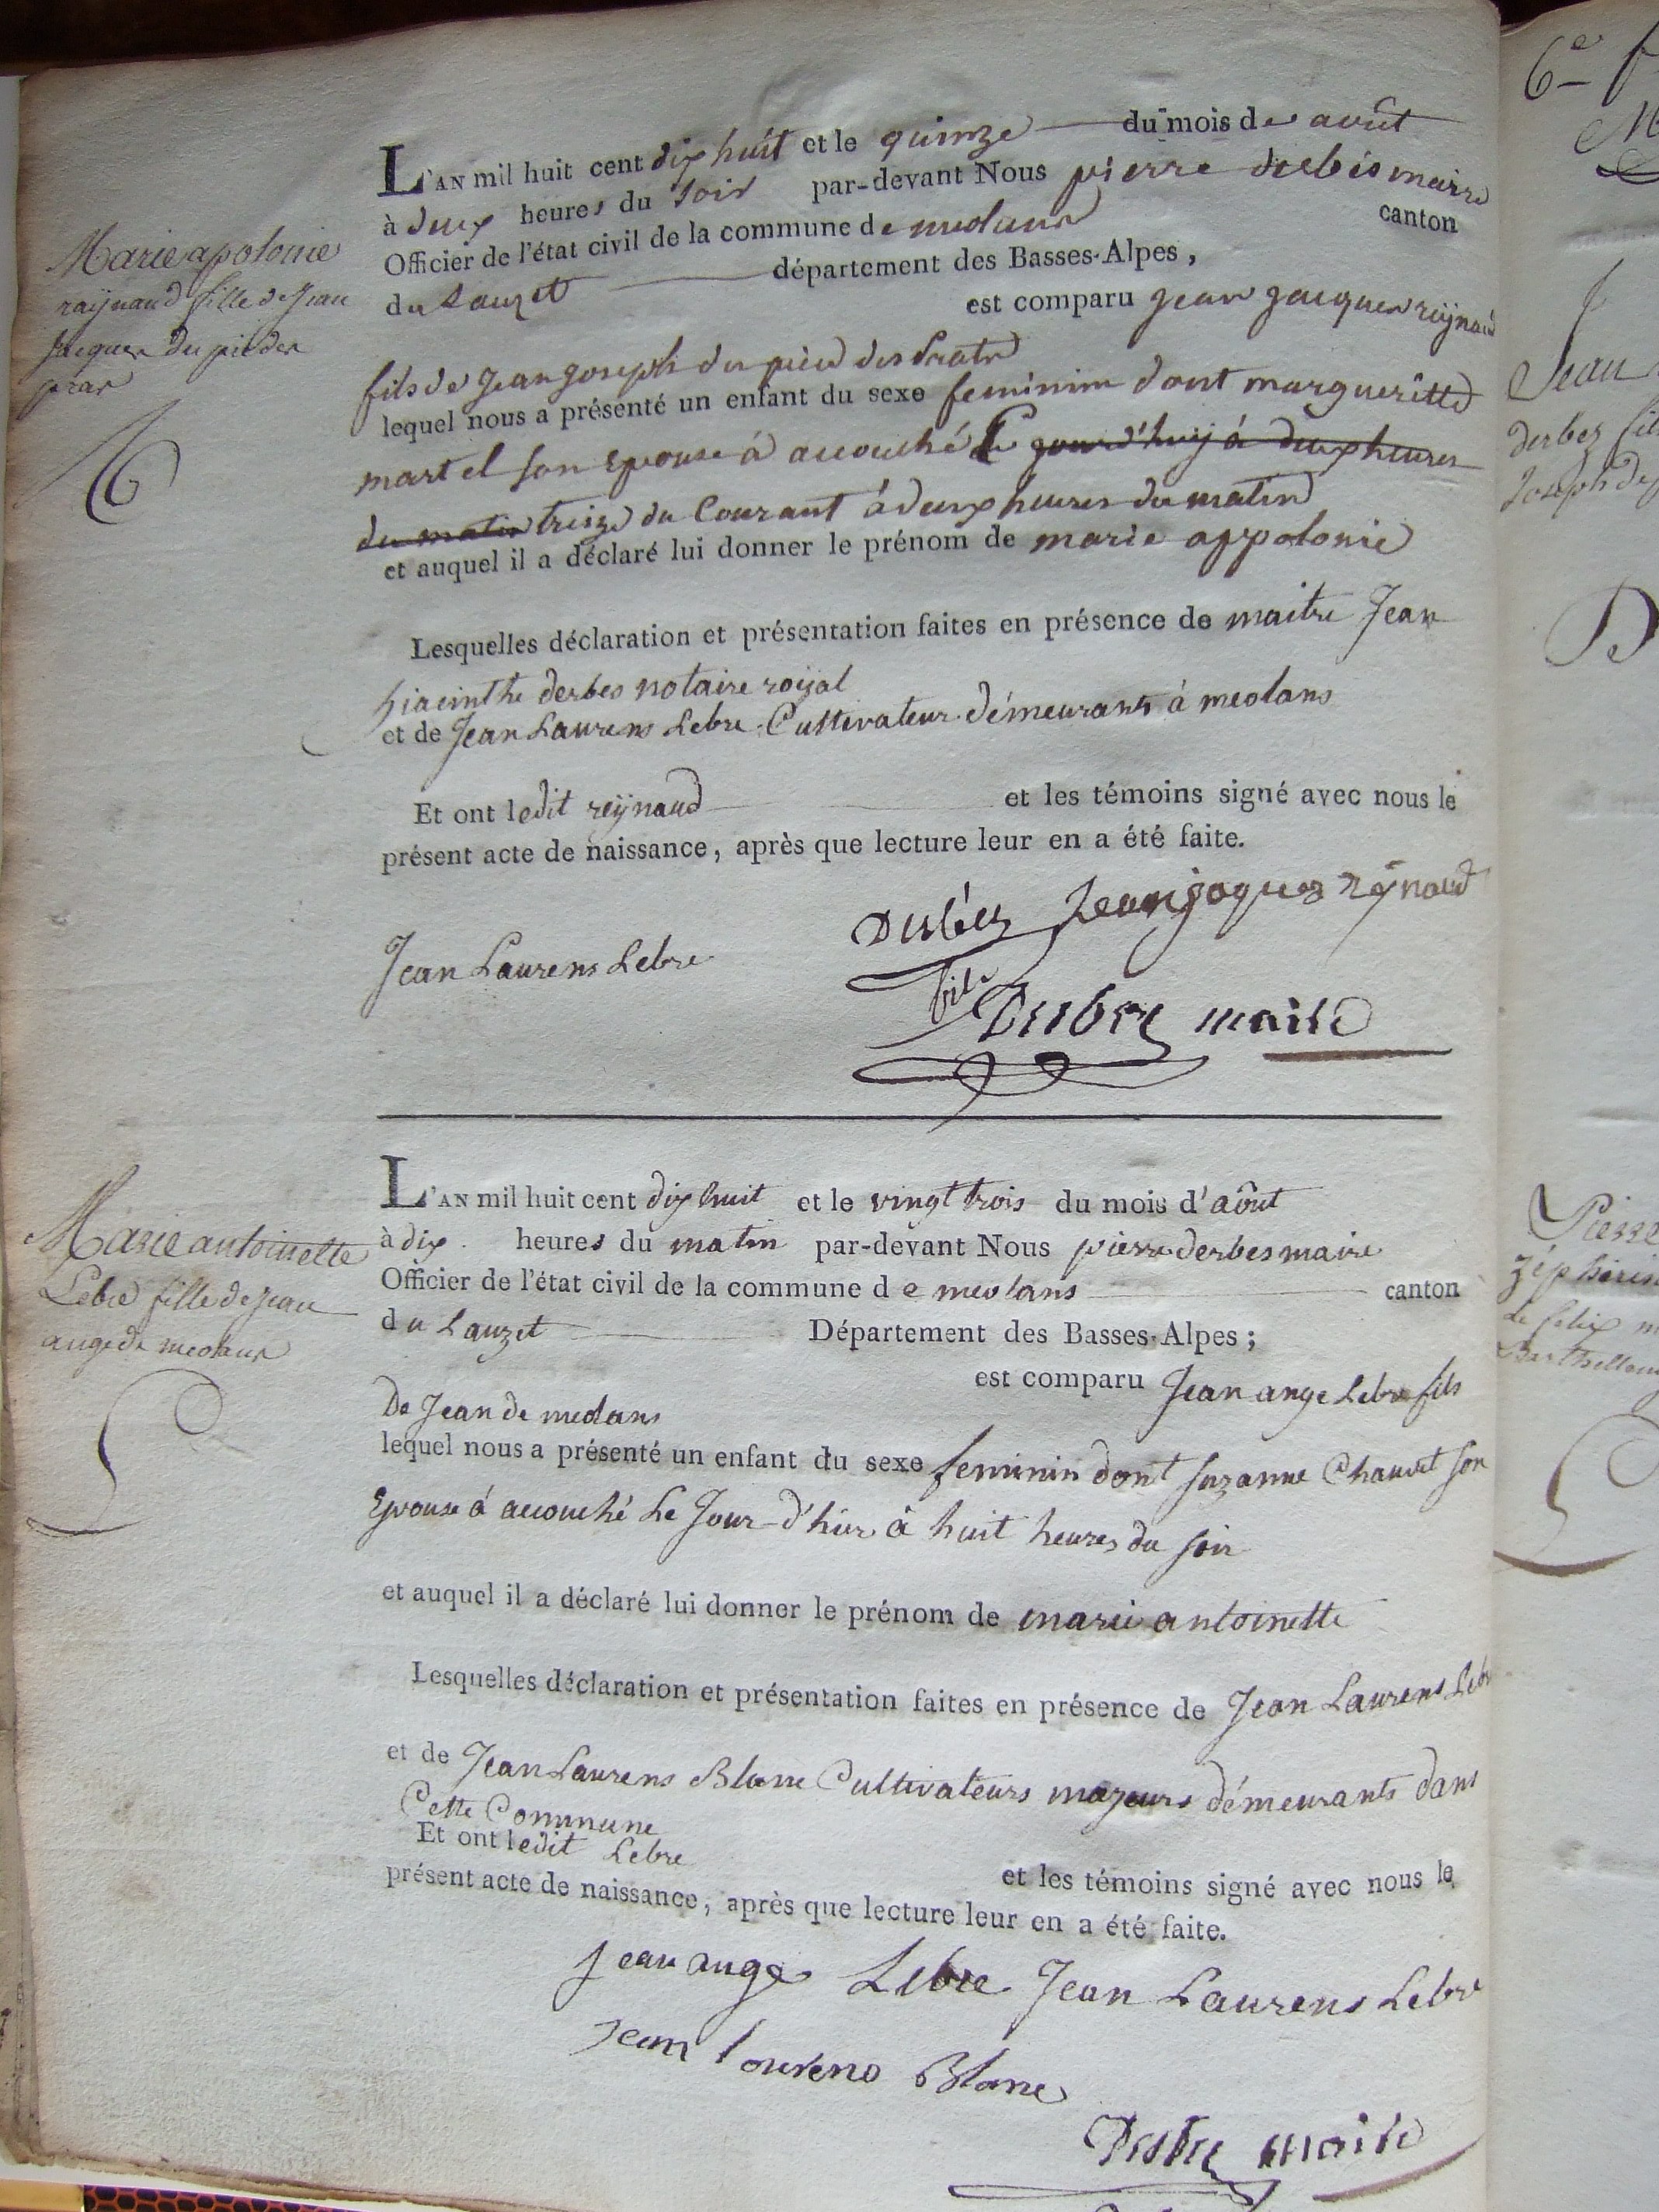 Marie apolonie
raÿnaud fille de Jean
Jacques du pied des
prax
L'AN mil huit cent dix huit et le quinze du mois de août
à deux heures du soir par-devant Nous pierre derbes maire
Officier de l'état civil de la commune de meolans canton
du Lauzet département des Basses-Alpes,
est comparu jean jacques reÿnaud
fils de jean joseph du pied des Prats
lequel nous a présenté un enfant du sexe feminim dont margueritte
martel son Epouse à accouché le jourd'huy à deux heures
du matin treize du Courant à deux heures du matin
et auquel il a déclaré lui donner le prénom de marie appolonie
Lesquelles déclaration et présentation faites en présence de maitre Jean
hiacinthe derbes notaire roÿal
et de Jean Laurens Lebre Cultivateur démeurants à meolans
Et ont ledit reÿnaud et les témoins signé avec nous le
présent acte de naissance, après que lecture leur en a été faite.
Derbés Jean jaques rÿnaud
Jean Laurens Lebre
fils
Derbes maire
Marie antoinette
Lebre fille de Jean
ange de meolans
L'AN mil huit cent dix huit et le vingt trois du mois d'août
à dix heures du matin par-devant Nous pierre derbes maire
Officier de l'état civil de la commune de meolans canton
du Lauzet Département des Basses-Alpes;
est comparu Jean ange Lebre fils
De Jean de meolans
lequel nous a présenté un enfant du sexe feminin dont suzanne Chauvet son
Epouse à accouché Le Jour-d'hier à huit heures du soir
et auquel il a déclaré lui donner le prénom de marie antoinette
Lesquelles déclaration et présentation faites en présence de Jean Laurens Lebre
et de Jean Laurens Blanc Cultivateurs majeurs démeurants dans
Cette Commune
Et ont ledit Lebre et les témoins signé avec nous le
présent acte de naissance, après que lecture leur en a été faite.
jean ange Lebre Jean Laurens Lebre
jean laurens Blanc
Derbes maire
6e
Jean
derbez fils
Joseph de
D
Pierre
zéphirin
de felix
Barthellem